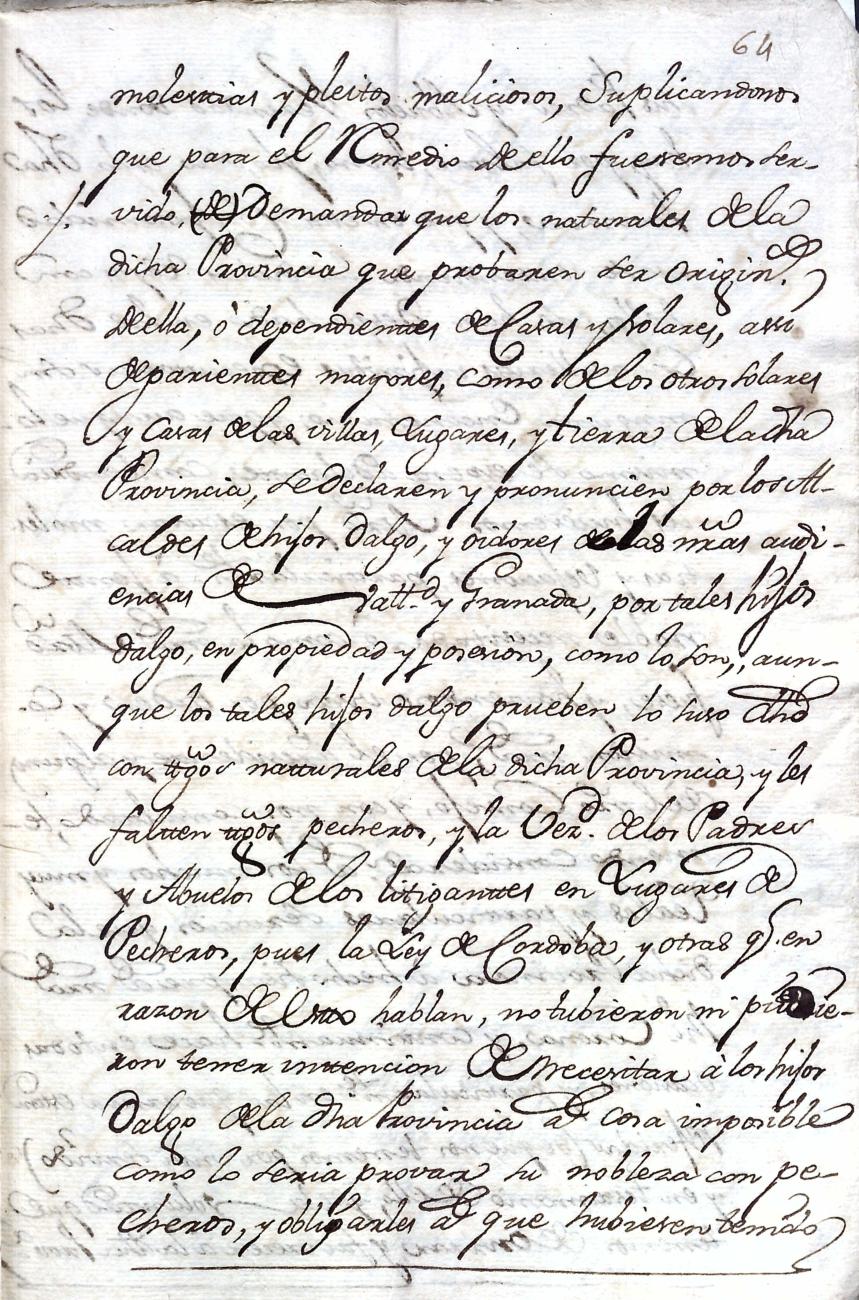 64
molestias y pleitos maliciosos, Suplicandonos
que para el Rmedio de ello fuesemos ser-
vido, (de) Demandar que los naturales de la
dicha Provincia que probaren ser origin.s
de ella, ò dependientes de Casas y solares, assi
de parientes mayores, como de los otros solares
y casas de las villas, Lugares, y tierra de la dha
Provincia, se declaren y pronuncien por los Al-
caldes de hijos Dalgo, y oidores de las nras audi-
encias de Vall.d y Granada, por tales hijos
dalgo, en propiedad y posesion, como lo son, aun-
que los tales hijos dalgo prueben lo suso dho
con ttgos natturales de la dicha Provincia, y les
faltten ttgos pecheros, y la Vez.d de los Padres
y Abuelos de los litigantes en Lugares de
Pecheros, pues la Ley de Cordoba, y otras q.e en
razon de Esto hablan, no tubieron ni pudie-
ron tener inttencion de necesitar à los hijos
Dalgo de la dha Provincia a cosa imposible
como lo seria provar su nobleza con pe-
cheros, y obligarles a que hubiesen tenido